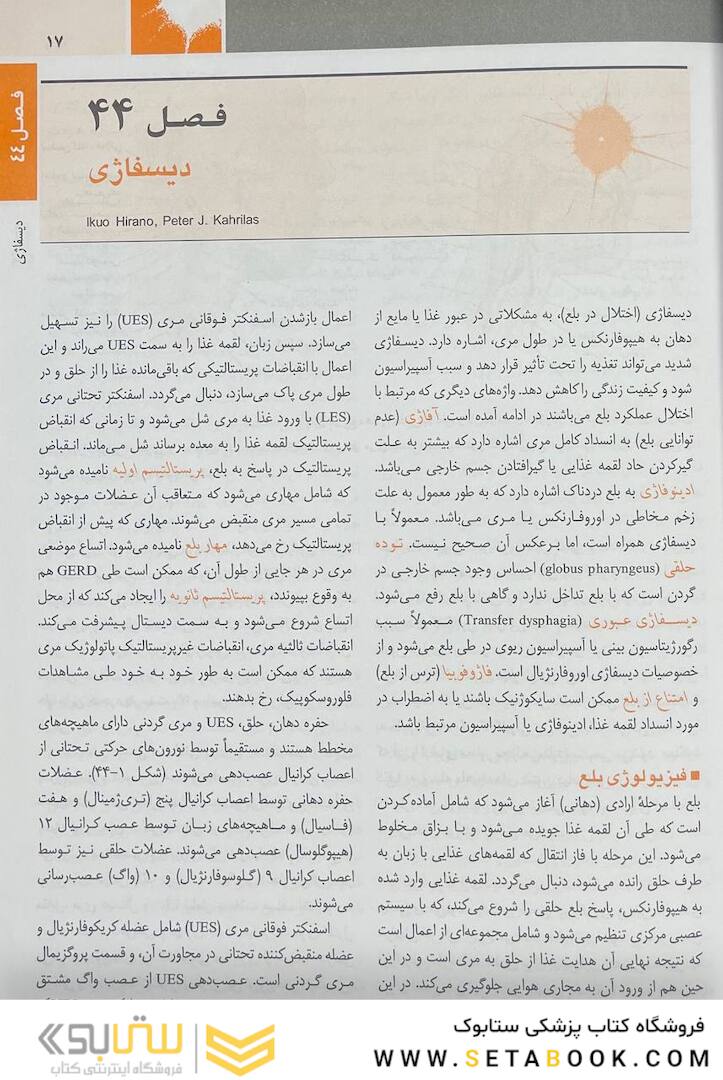 ۱۷
فصل ۴۴
دیسفاژی
فصل ۴۴
دیسفاژی
Ikuo Hirano, Peter J. Kahrilas
دیسفاژی (اختلال در بلع)، به مشکلاتی در عبور غذا یا مایع از
دهان به هیپوفارنکس یا در طول مری، اشاره دارد. دیسفاژی
شدید می‌تواند تغذیه را تحت تأثیر قرار دهد و سبب آسپیراسیون
شود و کیفیت زندگی را کاهش دهد. واژه‌های دیگری که مرتبط با
اختلال عملکرد بلع می‌باشند در ادامه آمده است. آفاژی (عدم
توانایی بلع) به انسداد کامل مری اشاره دارد که بیشتر به علت
گیرکردن حاد لقمه غذایی یا گیرافتادن جسم خارجی می‌باشد.
ادینوفاژی به بلع دردناک اشاره دارد که به طور معمول به علت
زخم مخاطی در اوروفارنکس یا مری می‌باشد. معمولاً با
دیسفاژی همراه است، اما برعکس آن صحیح نیست. توده
حلقی (globus pharyngeus) احساس وجود جسم خارجی در
گردن است که با بلع تداخل ندارد و گاهی با بلع رفع می‌شود.
دیسفاژی عبوری (Transfer dysphagia) معمولاً سبب
رگورژیتاسیون بینی یا آسپیراسیون ریوی در طی بلع می‌شود و از
خصوصیات دیسفاژی اوروفارنژیال است. فاژوفوبیا (ترس از بلع)
و امتناع از بلع ممکن است سایکوژنیک باشند یا به اضطراب در
مورد انسداد لقمه غذا، ادینوفاژی یا آسپیراسیون مرتبط باشد.
■ فیزیولوژی بلع
بلع با مرحلهٔ ارادی (دهانی) آغاز می‌شود که شامل آماده‌کردن
است که طی آن لقمه غذا جویده می‌شود و با بزاق مخلوط
می‌شود. این مرحله با فاز انتقال که لقمه‌های غذایی با زبان به
طرف حلق رانده می‌شود، دنبال می‌گردد. لقمه غذایی وارد شده
به هیپوفارنکس، پاسخ بلع حلقی را شروع می‌کند، که با سیستم
عصبی مرکزی تنظیم می‌شود و شامل مجموعه‌ای از اعمال است
که نتیجه نهایی آن هدایت غذا از حلق به مری است و در این
حین هم از ورود آن به مجاری هوایی جلوگیری می‌کند. در این
اعمال بازشدن اسفنکتر فوقانی مری (UES) را نیز تسهیل
می‌سازد. سپس زبان، لقمه غذا را به سمت UES می‌راند و این
اعمال با انقباضات پریستالتیکی که باقی‌مانده غذا را از حلق و در
طول مری پاک می‌سازد، دنبال می‌گردد. اسفنکتر تحتانی مری
(LES) با ورود غذا به مری شل می‌شود و تا زمانی که انقباض
پریستالتیک لقمه غذا را به معده برساند شل می‌ماند. انقباض
پریستالتیک در پاسخ به بلع، پریستالتیسم اولیه نامیده می‌شود
که شامل مهاری می‌شود که متعاقب آن عضلات موجود در
تمامی مسیر مری منقبض می‌شوند. مهاری که پیش از انقباض
پریستالتیک رخ می‌دهد، مهار بلع نامیده می‌شود. اتساع موضعی
مری در هر جایی از طول آن، که ممکن است طی GERD هم
به وقوع بپیوندد، پریستالتیسم ثانویه را ایجاد می‌کند که از محل
اتساع شروع می‌شود و به سمت دیستال پیشرفت می‌کند.
انقباضات ثالثیه مری، انقباضات غیرپریستالتیک پاتولوژیک مری
هستند که ممکن است به طور خود به خود طی مشاهدات
فلوروسکوپیک، رخ بدهند.
حفره دهان، حلق، UES و مری گردنی دارای ماهیچه‌های
مخطط هستند و مستقیماً توسط نورون‌های حرکتی تحتانی از
اعصاب کرانیال عصب‌دهی می‌شوند (شکل ۱-۴۴). عضلات
حفره دهانی توسط اعصاب کرانیال پنج (تری‌ژمینال) و هفت
(فاسیال) و ماهیچه‌های زبان توسط عصب کرانیال ۱۲
(هیپوگلوسال) عصب‌دهی می‌شوند. عضلات حلقی نیز توسط
اعصاب کرانیال ۹ (گلوسوفارنژیال) و ۱۰ (واگ) عصب‌رسانی
می‌شوند.
اسفنکتر فوقانی مری (UES) شامل عضله کریکوفارنژیال و
عضله منقبض‌کننده تحتانی در مجاورت آن، و قسمت پروگزیمال
مری گردنی است. عصب‌دهی UES از عصب واگ مشتق
فروشگاه کتاب پزشکی ستابوک
WWW.SETABOOK.COM
ستابوک
فروشگاه اینترنتی کتاب